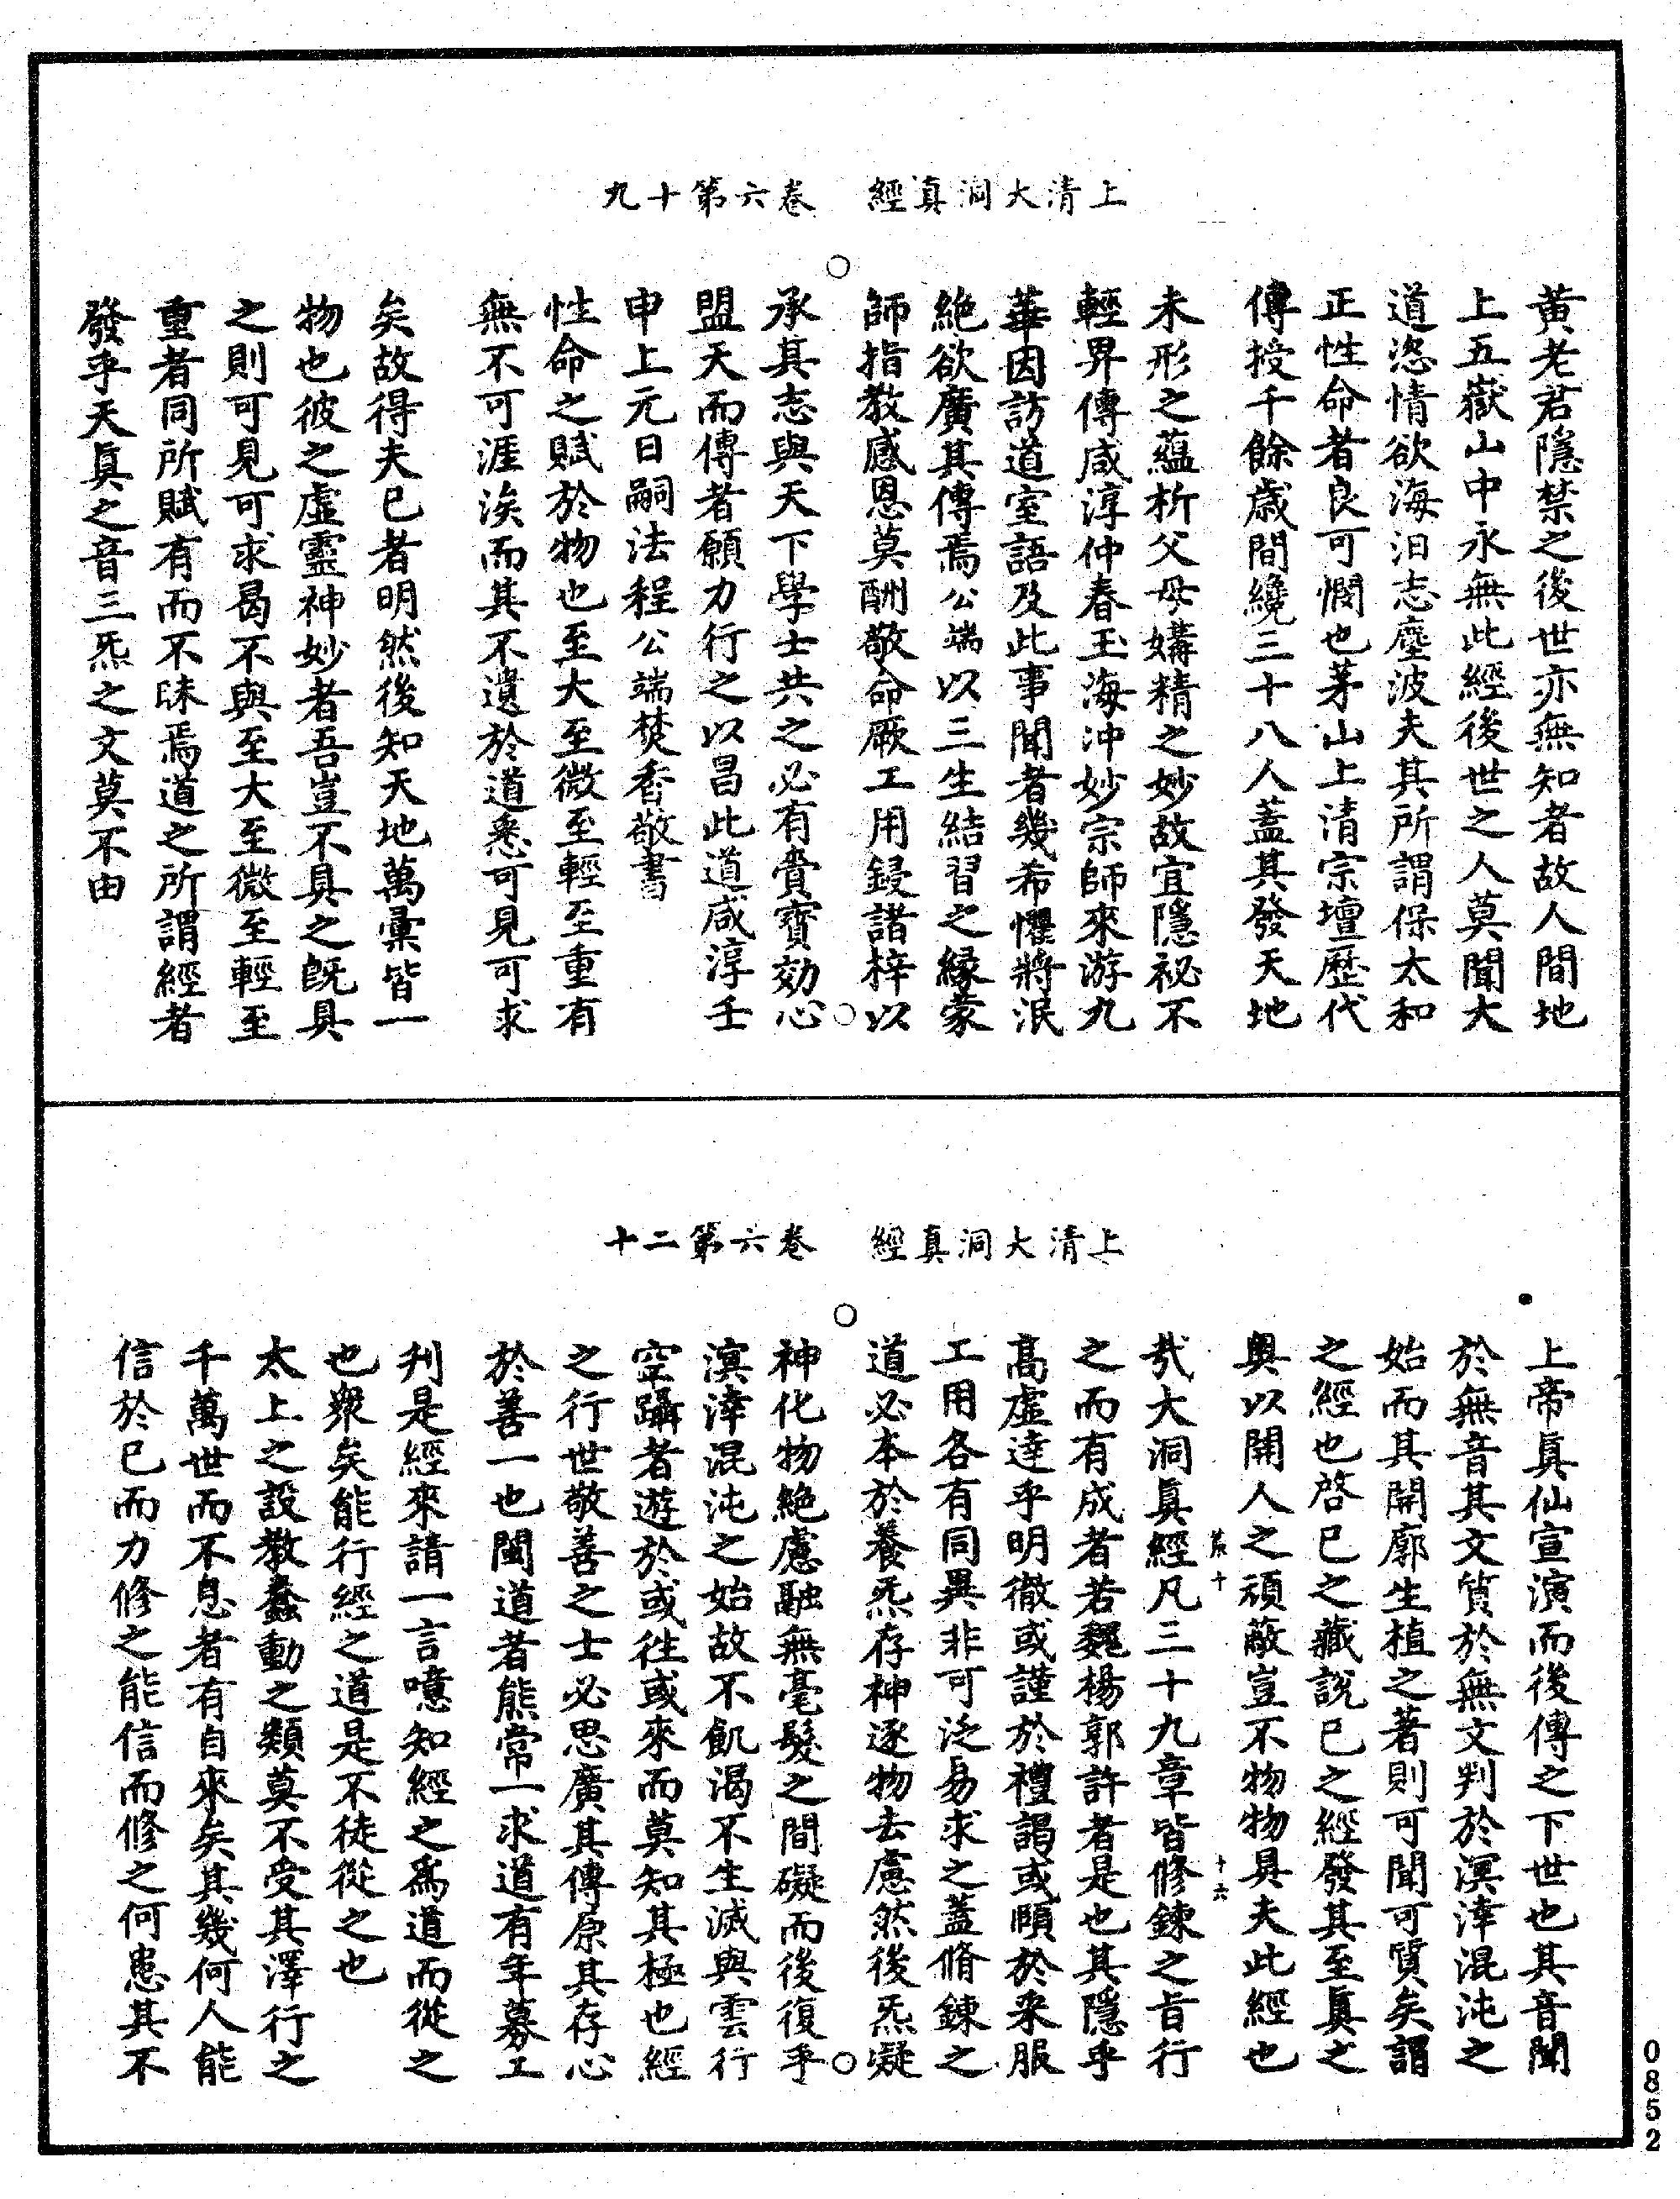 上清大洞真經　卷六第十九
黃老君隱禁之後世亦無知者故人間地
上五嶽山中永無此經後世之人莫聞大
道恣情欲海汨志塵波夫其所謂保太和
正性命者良可憫也茅山上清宗壇歷代
傳授千餘歲間纔三十八人蓋其發天地
未形之蘊析父母媾精之妙故宜隱祕不
輕畀傳咸淳仲春玉海沖妙宗師來游九
華因訪道室語及此事聞者幾希懼將泯
絕欲廣其傳焉公端以三生結習之緣蒙
師指教感恩莫酬敬命厥工用鋟諸梓以
承其志與天下學士共之必有賫寳効心
盟天而傳者願力行之以昌此道咸淳壬
申上元日嗣法程公端焚香敬書
性命之賦於物也至大至微至輕至重有
無不可涯涘而其不遺於道悉可見可求
矣故得夫已者明然後知天地萬彙皆一
物也彼之虛靈神妙者吾豈不具之旣具
之則可見可求曷不與至大至微至輕至
重者同所賦有而不昧焉道之所謂經者
發乎天眞之音三炁之文莫不由
上清大洞真經　卷六第二十
上帝眞仙宣演而後傳之下世也其音聞
於無音其文質於無文判於溟涬混沌之
始而其開廓生植之著則可聞可質矣謂
之經也啓已之藏說已之經發其至眞之
奥以開人之頑蔽豈不物物具夫此經也
㢤大洞眞經凡三十九章皆修鍊之旨行
之而有成者若魏楊郭許者是也其隱乎
高虛達乎明徹或謹於禮謁或頤於来服
工用各有同異非可泛易求之蓋脩鍊之
道必本於養炁存神逐物去慮然後炁凝
神化物絕慮融無毫髮之間礙而後復乎
溟涬混沌之始故不飢渴不生滅與雲行
空躡者遊於或徃或來而莫知其極也經
之行世敬善之士必思廣其傳原其存心
於善一也閩道者熊常一求道有年募工
刋是經來請一言噫知經之爲道而從之
也衆矣能行經之道是不徒從之也
太上之設教蠢動之類莫不受其澤行之
千萬世而不息者有自來矣其幾何人能
信於已而力修之能信而修之何患其不
十六
0852